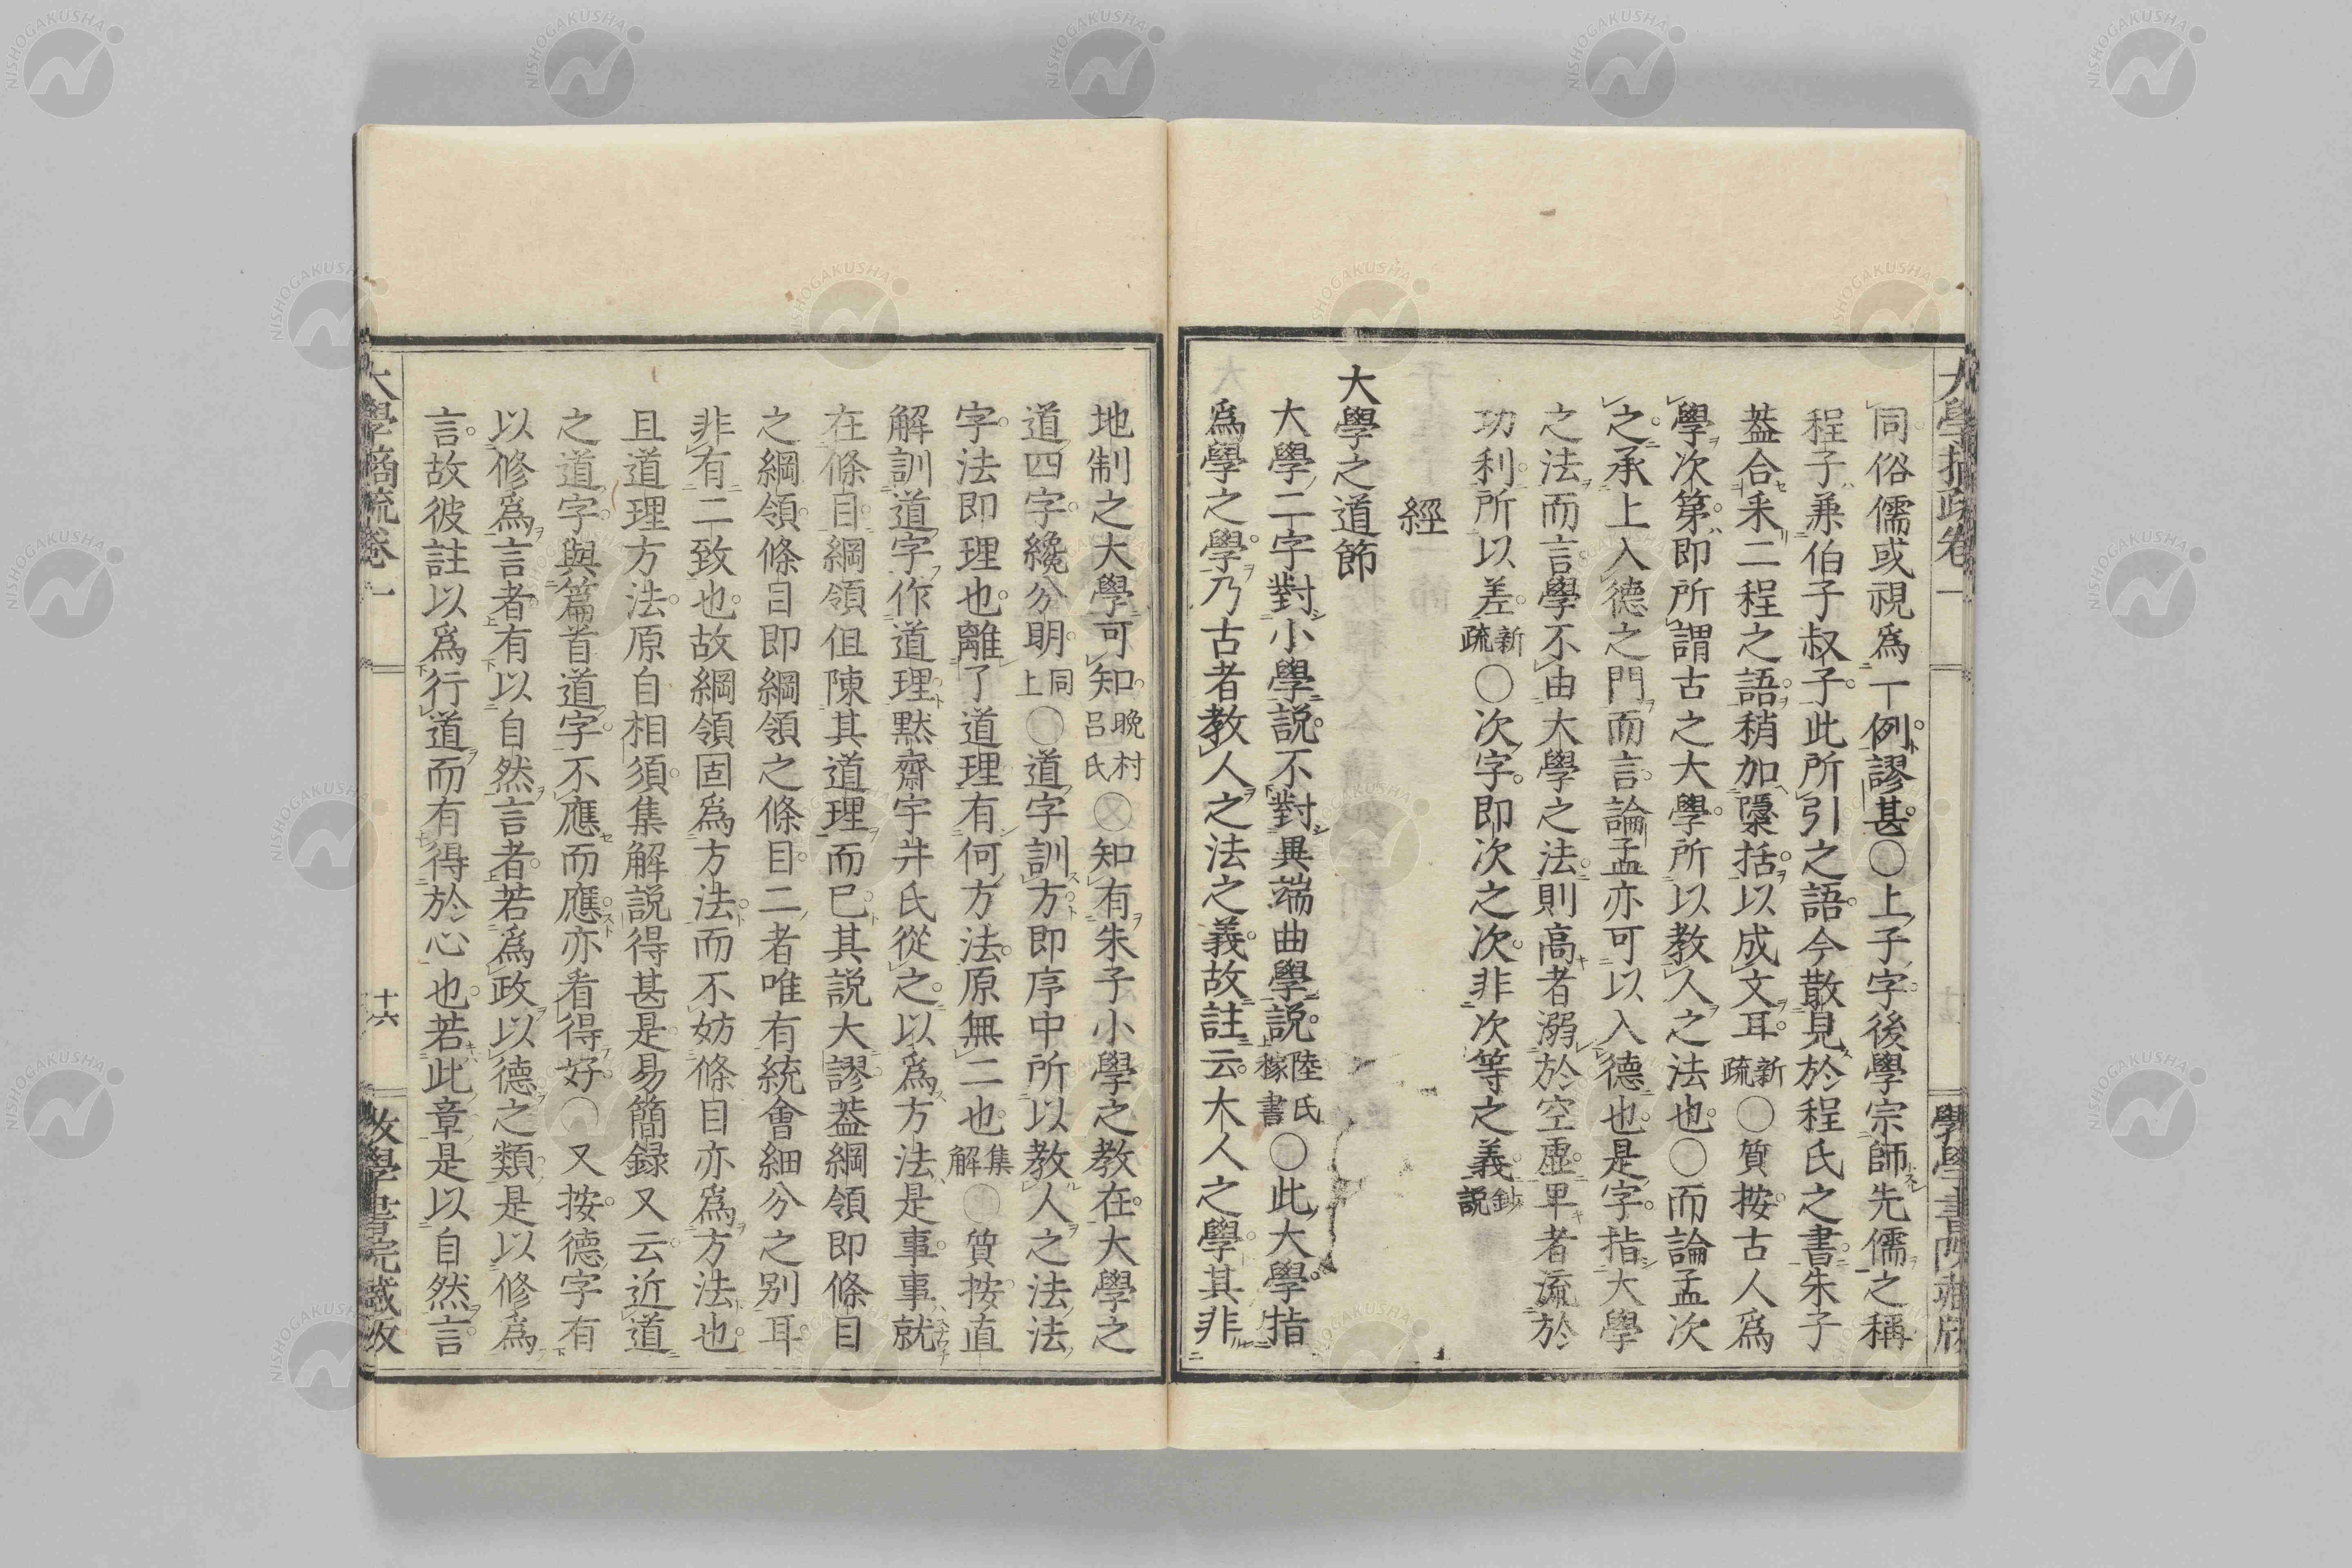 大學摘疏卷一
同俗儒或視爲一例謬甚○上子字後學宗師先儒之稱
程子兼伯子叔子此所引之語今散見於程氏之書朱子
葢合釆二程之語稍加檃括以成文耳新疏○質按古人爲
學次第即所謂古之大學所以教人之法也○而論孟次
之承上入德之門而言論孟亦可以入德也是字指大學
之法而言學不由大學之法則高者溺於空虛卑者流於
功利所以差新疏○次字即次之次非次等之義鈔説
經
大學之道節
大學二字對小學説不對異端曲學説陸氏稼書○此大學指
爲學之學乃古者教人之法之義故註云大人之學其非
地制之大學可知晩村吕氏○又知有朱子小學之教在大學之
道四字纔分明同上○道字訓方即序中所以教人之法法
字法即理也離了道理有何方法原無二也集解○質按直
解訓道字作道理默齋宇井氏從之以爲方法是事事就
在條目綱領但陳其道理而已其説大謬葢綱領即條目
之綱領條目即綱領之條目二者唯有統會細分之别耳
非有二致也故綱領固爲方法而不妨條目亦爲方法也
且道理方法原自相須集解説得甚是易簡録又云近道
之道字與篇首道字不應而應亦看得好○又按德字有
以修爲言者有以自然言者若爲政以德之類是以修爲
言故彼註以爲行道而有得於心也若此章是以自然言
大學摘疏卷一
十六